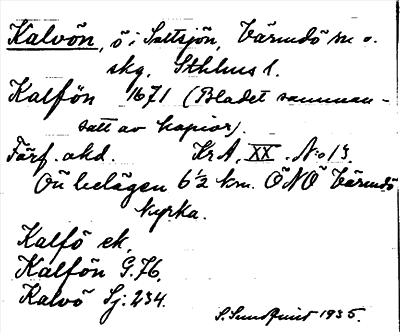 Kalvön, ö i Saltsjön, Värmdö sn o.
skg. Sthlms l.
Kalfön 1671 (Bladet samman-
satt av kopior).
Förf. okd. Kr A. XX. N:o 13.
Ön belägen 6½ km. ÖNÖ Värmdö
kyrka.
Kalfö ek.
Kalfön G.76.
Kalvö Sj. 234.
S. Sundquist 1935.